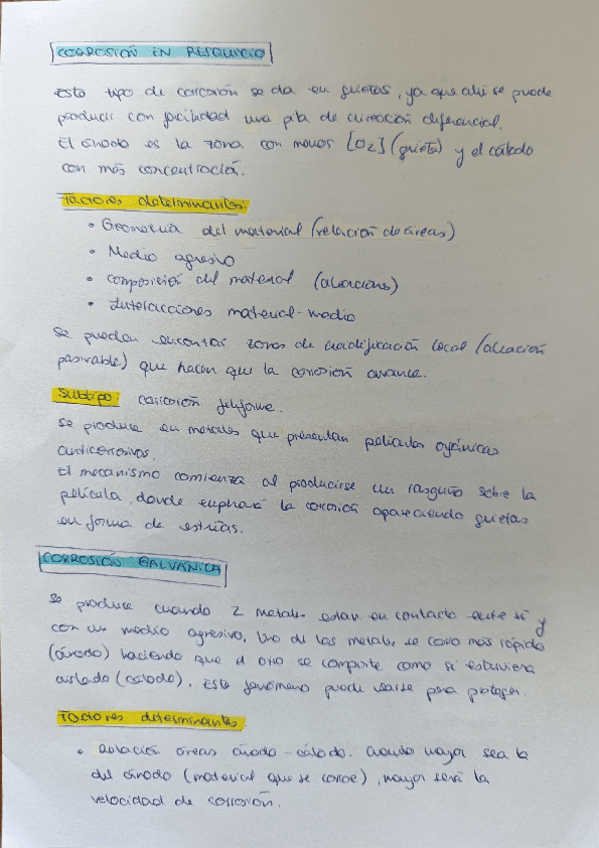 CORROSIÓN EN RESQUICIO
Este tipo de corrosión se da en grietas, ya que ahí se puede
producir con facilidad una pila de aireación diferencial.
El ánodo es la zona con menos [O2] (grieta) y el cátodo
con más concentración.
Factores determinantes:
• Geometría del material (relación de áreas)
• Medio agresivo
• Composición del material (aleaciones)
• Interacciones material-medio
Se pueden encontrar zonas de acidificación local (aleación
pasivable) que hacen que la corrosión avance.
Subtipo: corrosión filiforme.
Se produce en metales que presentan películas orgánicas
anticorrosivas.
El mecanismo comienza al producirse un rasguño sobre la
película, donde empezará la corrosión apareciendo grietas
en forma de estrías.
CORROSIÓN GALVÁNICA
Se produce cuando 2 metales están en contacto entre sí y
con un medio agresivo. Uno de los metales se corroe más rápido
(ánodo) haciendo que el otro se comporte como si estuviera
aislado (cátodo). Este fenómeno puede usarse para proteger.
Factores determinantes
• Relación áreas ánodo-cátodo. Cuanto mayor sea la
del ánodo (material que se corroe), mayor será la
velocidad de corrosión.